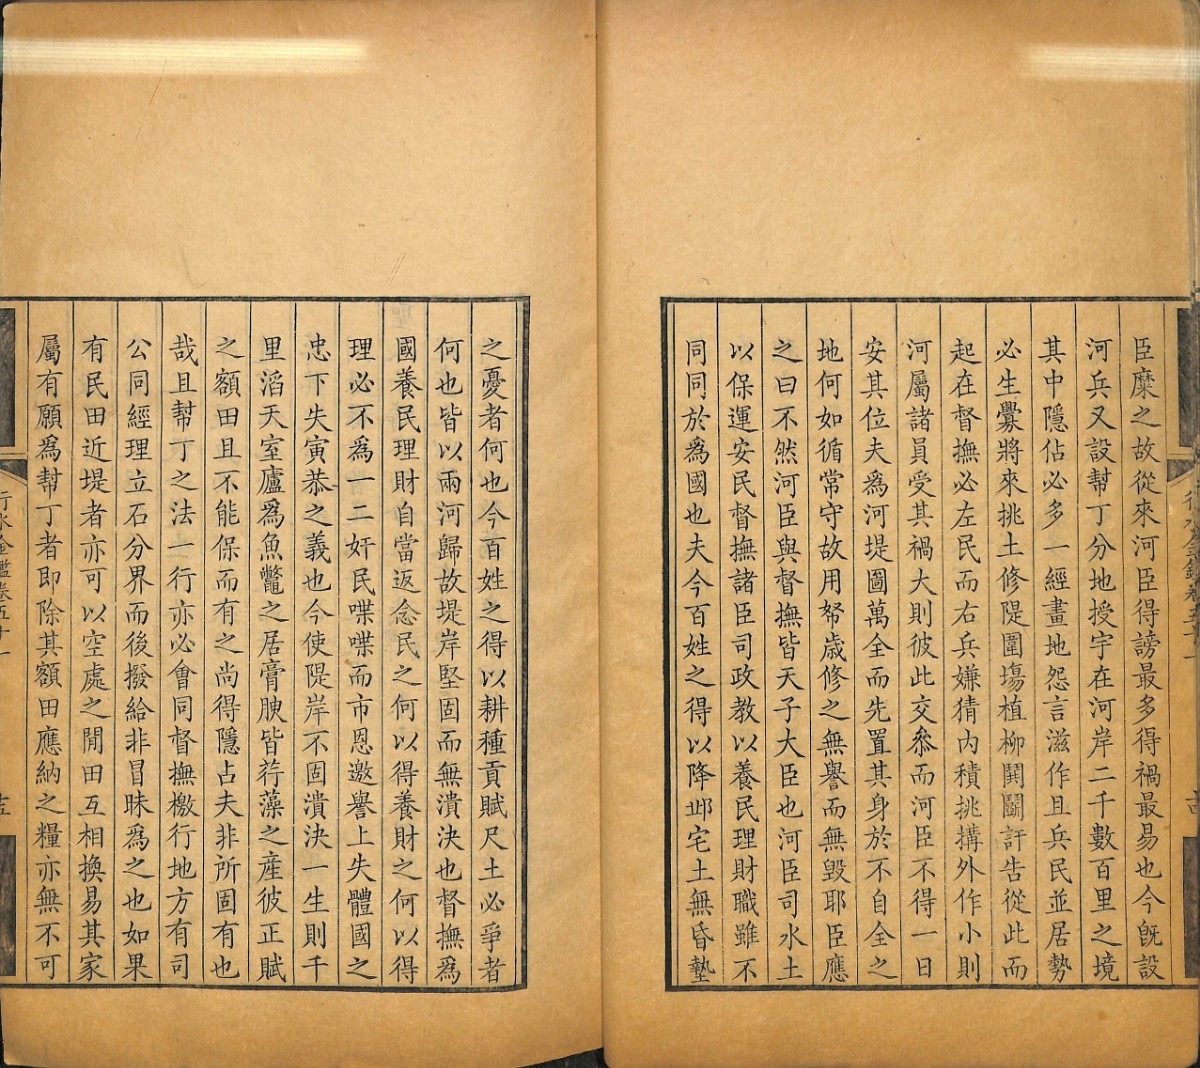 臣糜之故從來河臣得謗最多得禍最易也今旣設
河兵又設幫丁分地授宇在河岸二千數百里之境
其中隱佔必多一經畫地怨言滋作且兵民並居勢
必生釁將來挑土修隄圍塲植柳鬭鬬訐告從此而
起在督撫必左民而右兵嫌猜內積挑搆外作小則
河屬諸員受其禍大則彼此交叅而河臣不得一日
安其位夫為河堤圖萬全而先置其身於不自全之
地何如循常守故用帑歲修之無譽而無毀耶臣應
之曰不然河臣與督撫皆天子大臣也河臣司水土
以保運安民督撫諸臣司政教以養民理財職雖不
同同於為國也夫今百姓之得以降邱宅土無昏墊
之憂者何也今百姓之得以耕種貢賦尺土必爭者
何也皆以兩河歸故堤岸堅固而無潰決也督撫爲
國養民理財自當返念民之何以得養財之何以得
理必不為一二奸民喋喋而市恩邀譽上失體國之
忠下失寅恭之義也今使隄岸不固潰決一生則千
里滔天室廬爲魚鼈之居膏腴皆荇藻之產彼正賦
之額田且不能保而有之尚得隱占夫非所固有也
哉且幇丁之法一行亦必會同督撫檄行地方有司
公同經理立石分界而後撥給非冒昧爲之也如果
有民田近堤者亦可以空處之閒田互相換易其家
屬有願爲幇丁者即除其額田應納之糧亦無不可
行水金鑑卷五十一